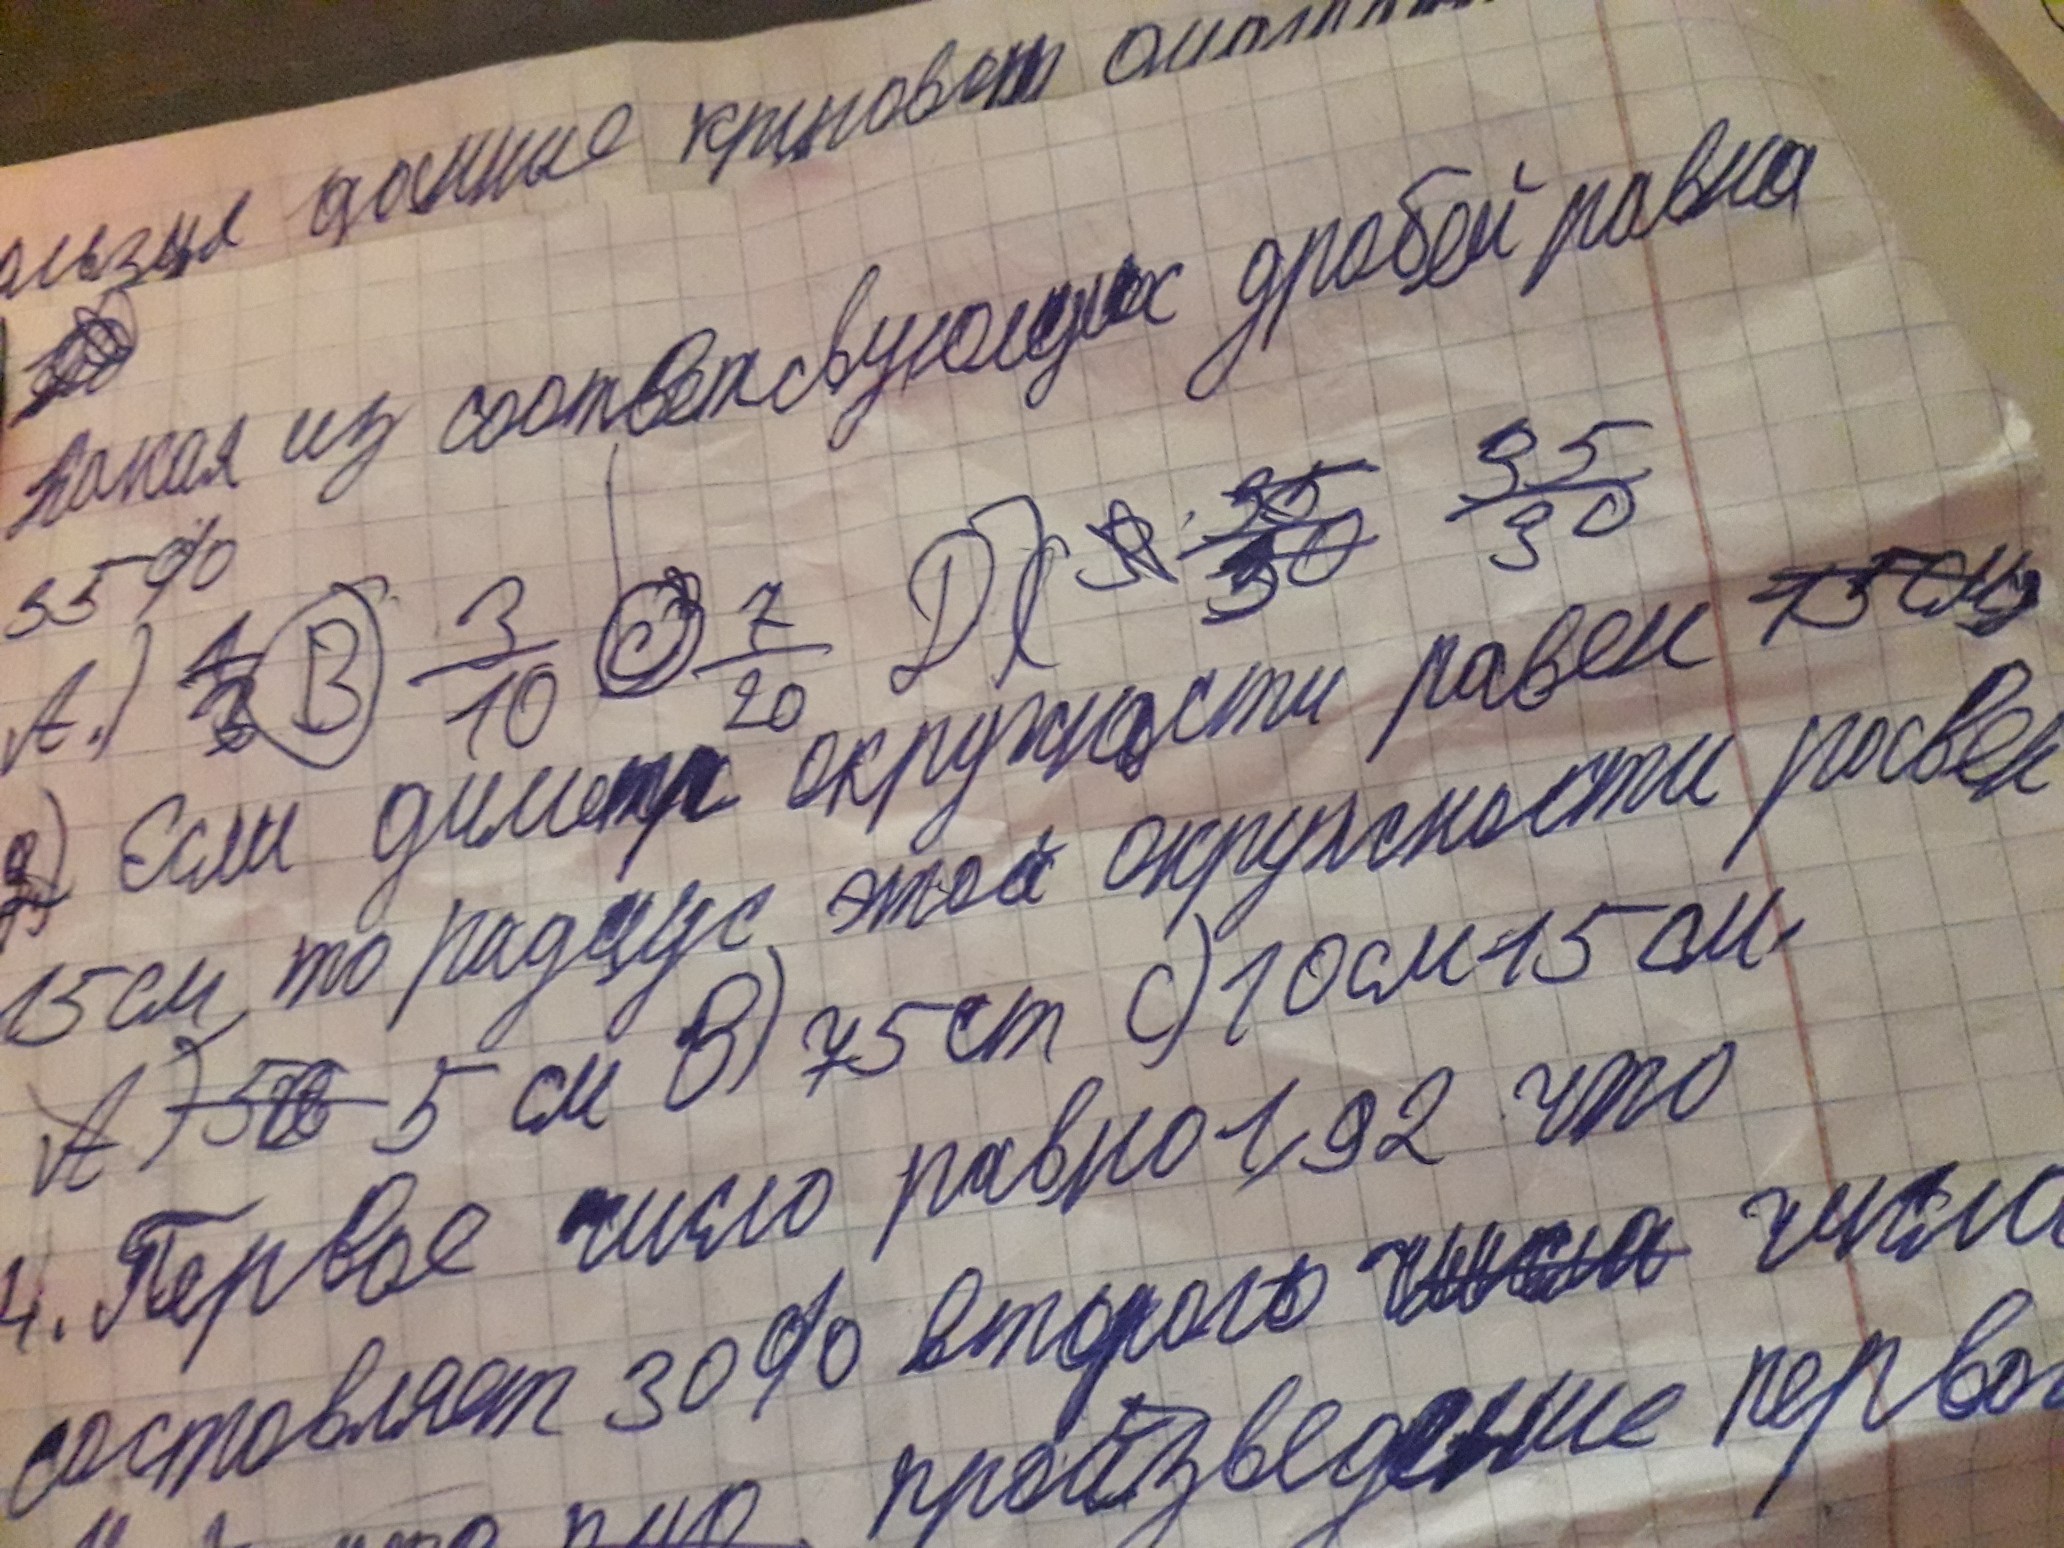 данные
Какая из соответсвующих дробей равна
35%
A.) B) 3/10 C) 7/20 D) 35/30
3) Если диметр окружности равен
15 см, то радиус этой окружности равен
A) 5 см B) 75 cm C) 10 см 15 см.
4. Первое число равно 1,92 что
составляет 30% второго числа
произведение